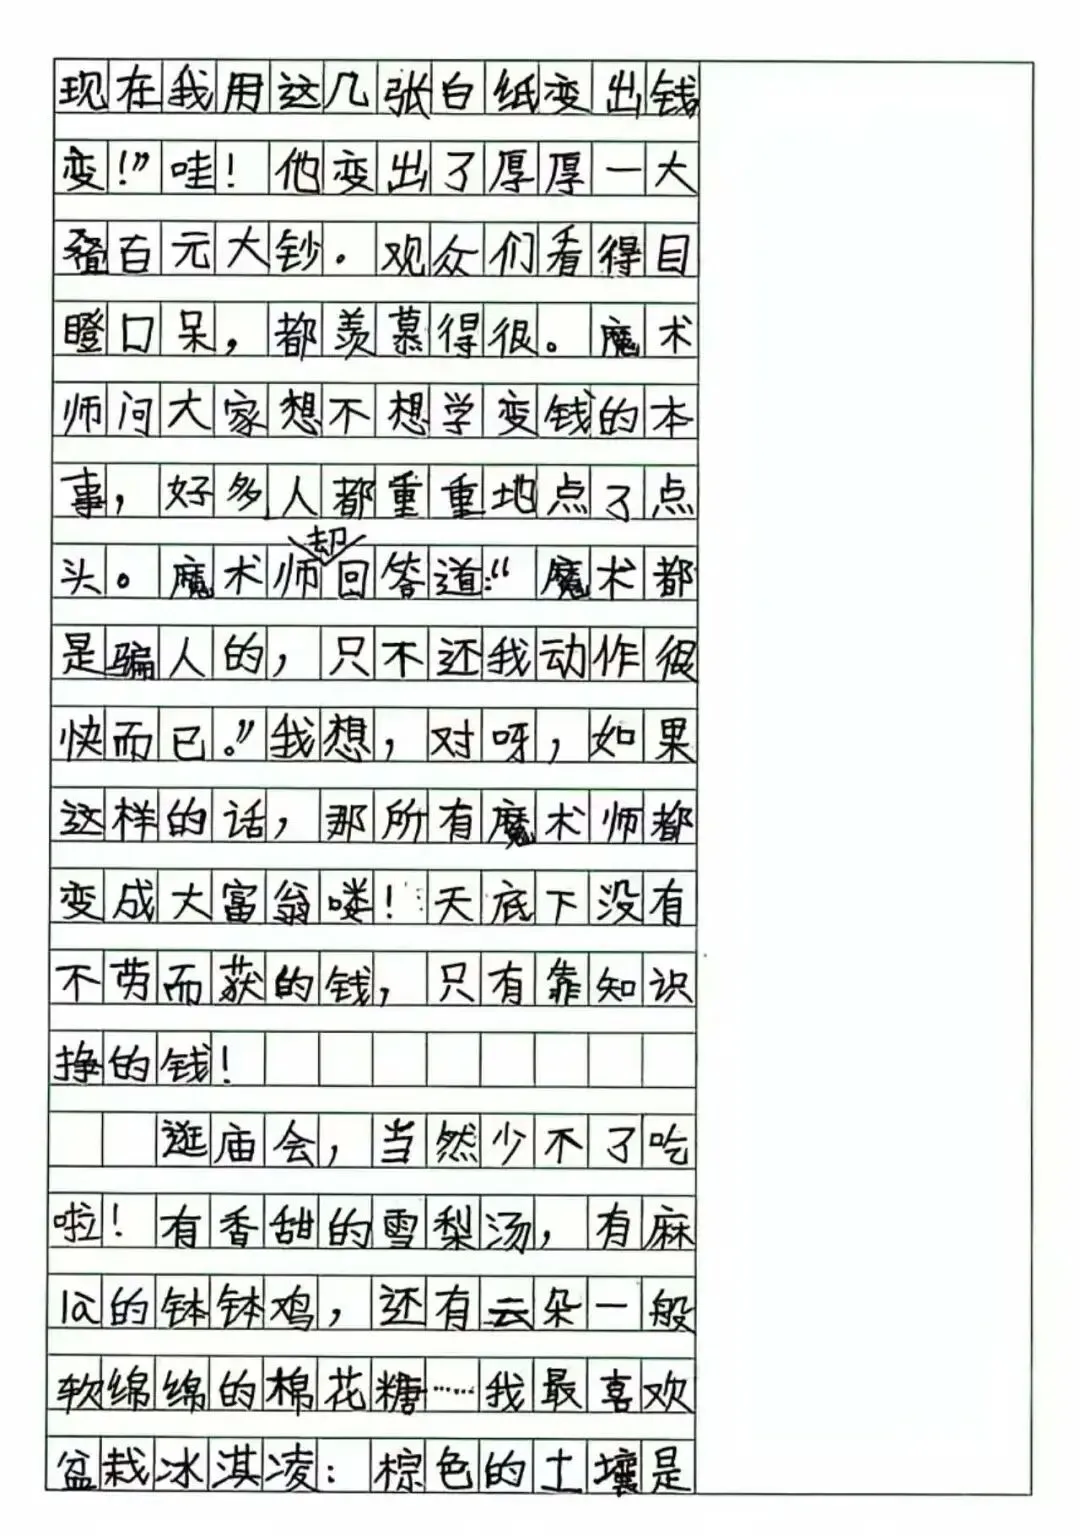 现在我用这几张白纸变出钱
变!”哇!他变出了厚厚一大
叠百元大钞。观众们看得目
瞪口呆,都羡慕得很。魔术
师问大家想不想学变钱的本
事,好多人都重重地点了点
头。魔术师却回答道:“魔术都
是骗人的,只不还我动作很
快而已。”我想,对呀,如果
这样的话,那所有魔术师都
变成大富翁喽!天底下没有
不劳而获的钱,只有靠知识
挣的钱!
逛庙会,当然少不了吃
啦!有香甜的雪梨汤,有麻
là的钵钵鸡,还有云朵一般
软绵绵的棉花糖……我最喜欢
盆栽冰淇凌:棕色的土壤是